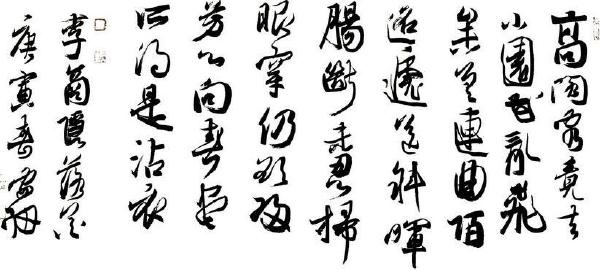 高閣客竟去
小園花亂飛
参差連曲陌
迢遞送斜暉
腸斷未忍掃
眼穿仍欲歸
芳心向春盡
所得是沾衣
李商隱落花
庚寅春